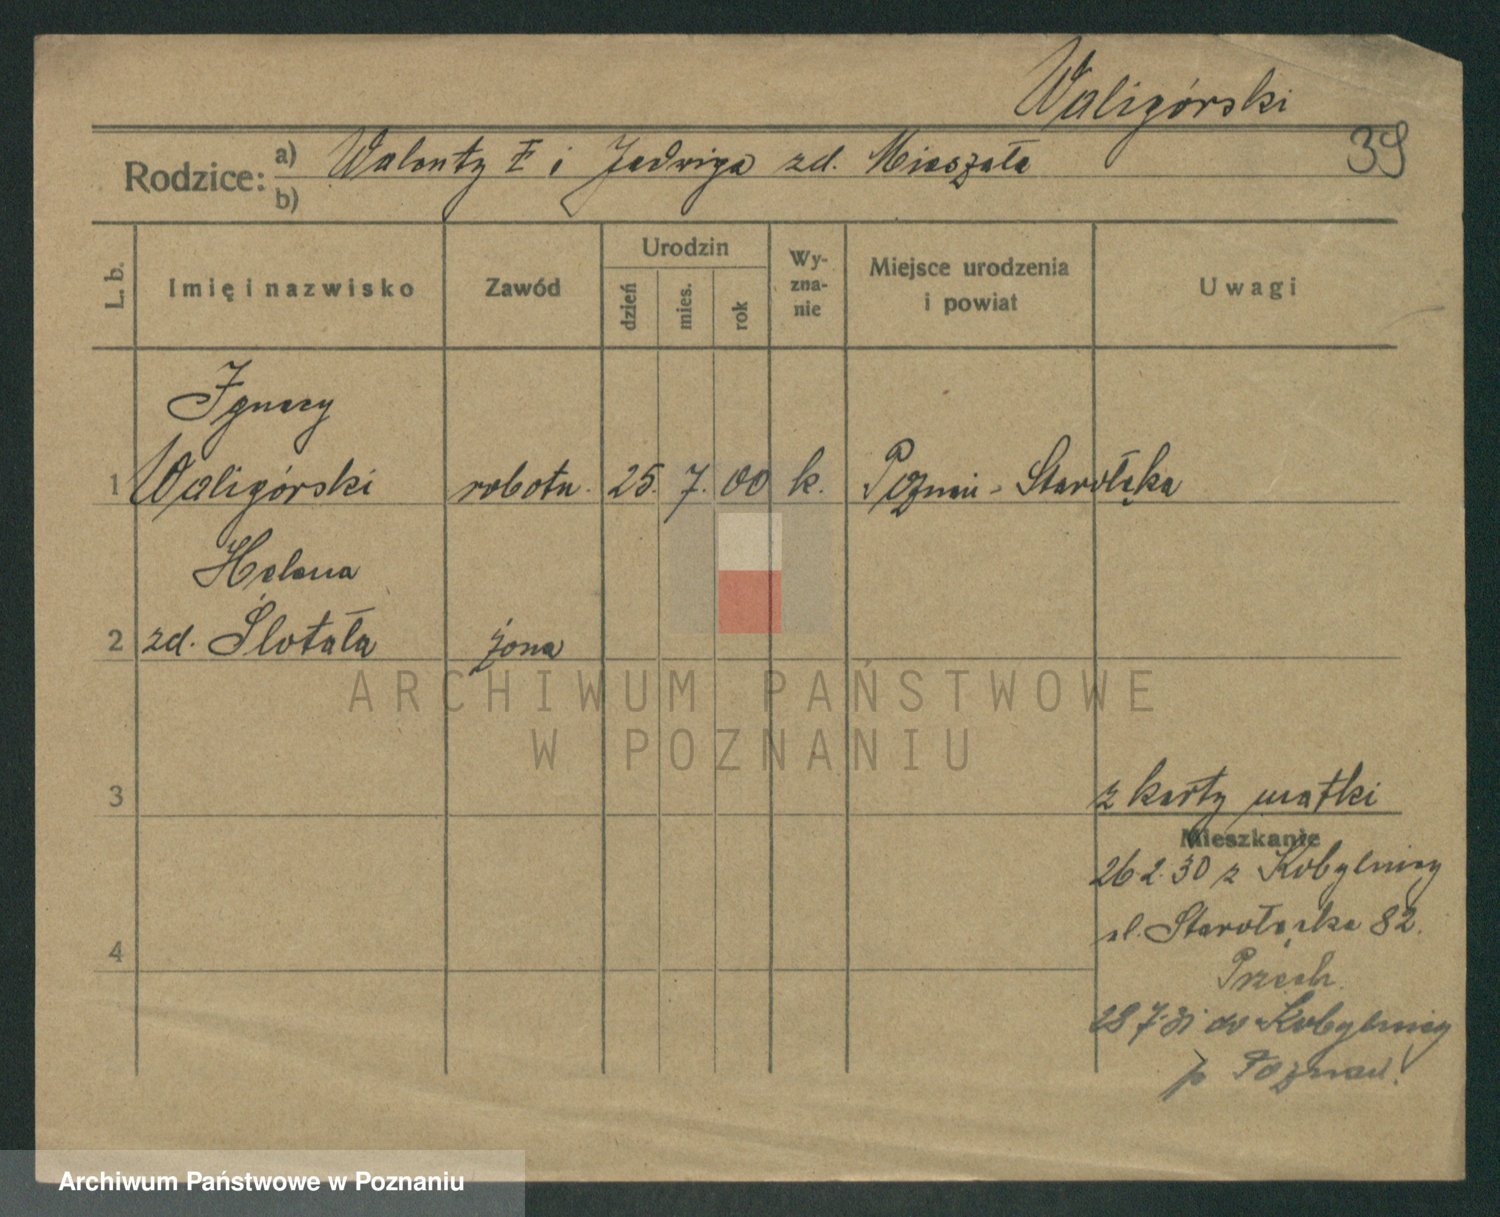 Waligórski
39
Rodzice: a) Walenty i Jadwiga zd. Mieszała
b)
L. b. Imię i nazwisko Zawód Urodzin dzień mies. rok Wyznanie Miejsce urodzenia i powiat Uwagi
Ignacy
1 Waligórski robotn. 25. 7. 00 k. Poznań - Starołęka
Helena
2 zd. Ślotała żona
ARCHIWUM PAŃSTWOWE
W POZNANIU
3 z karty matki
Mieszkanie
26 2. 30 z Kobylnicy
ul. Starołęcka 82.
4
Przech.
28 7. 31 do Kobylnicy
p Poznań.
Archiwum Państwowe w Poznaniu